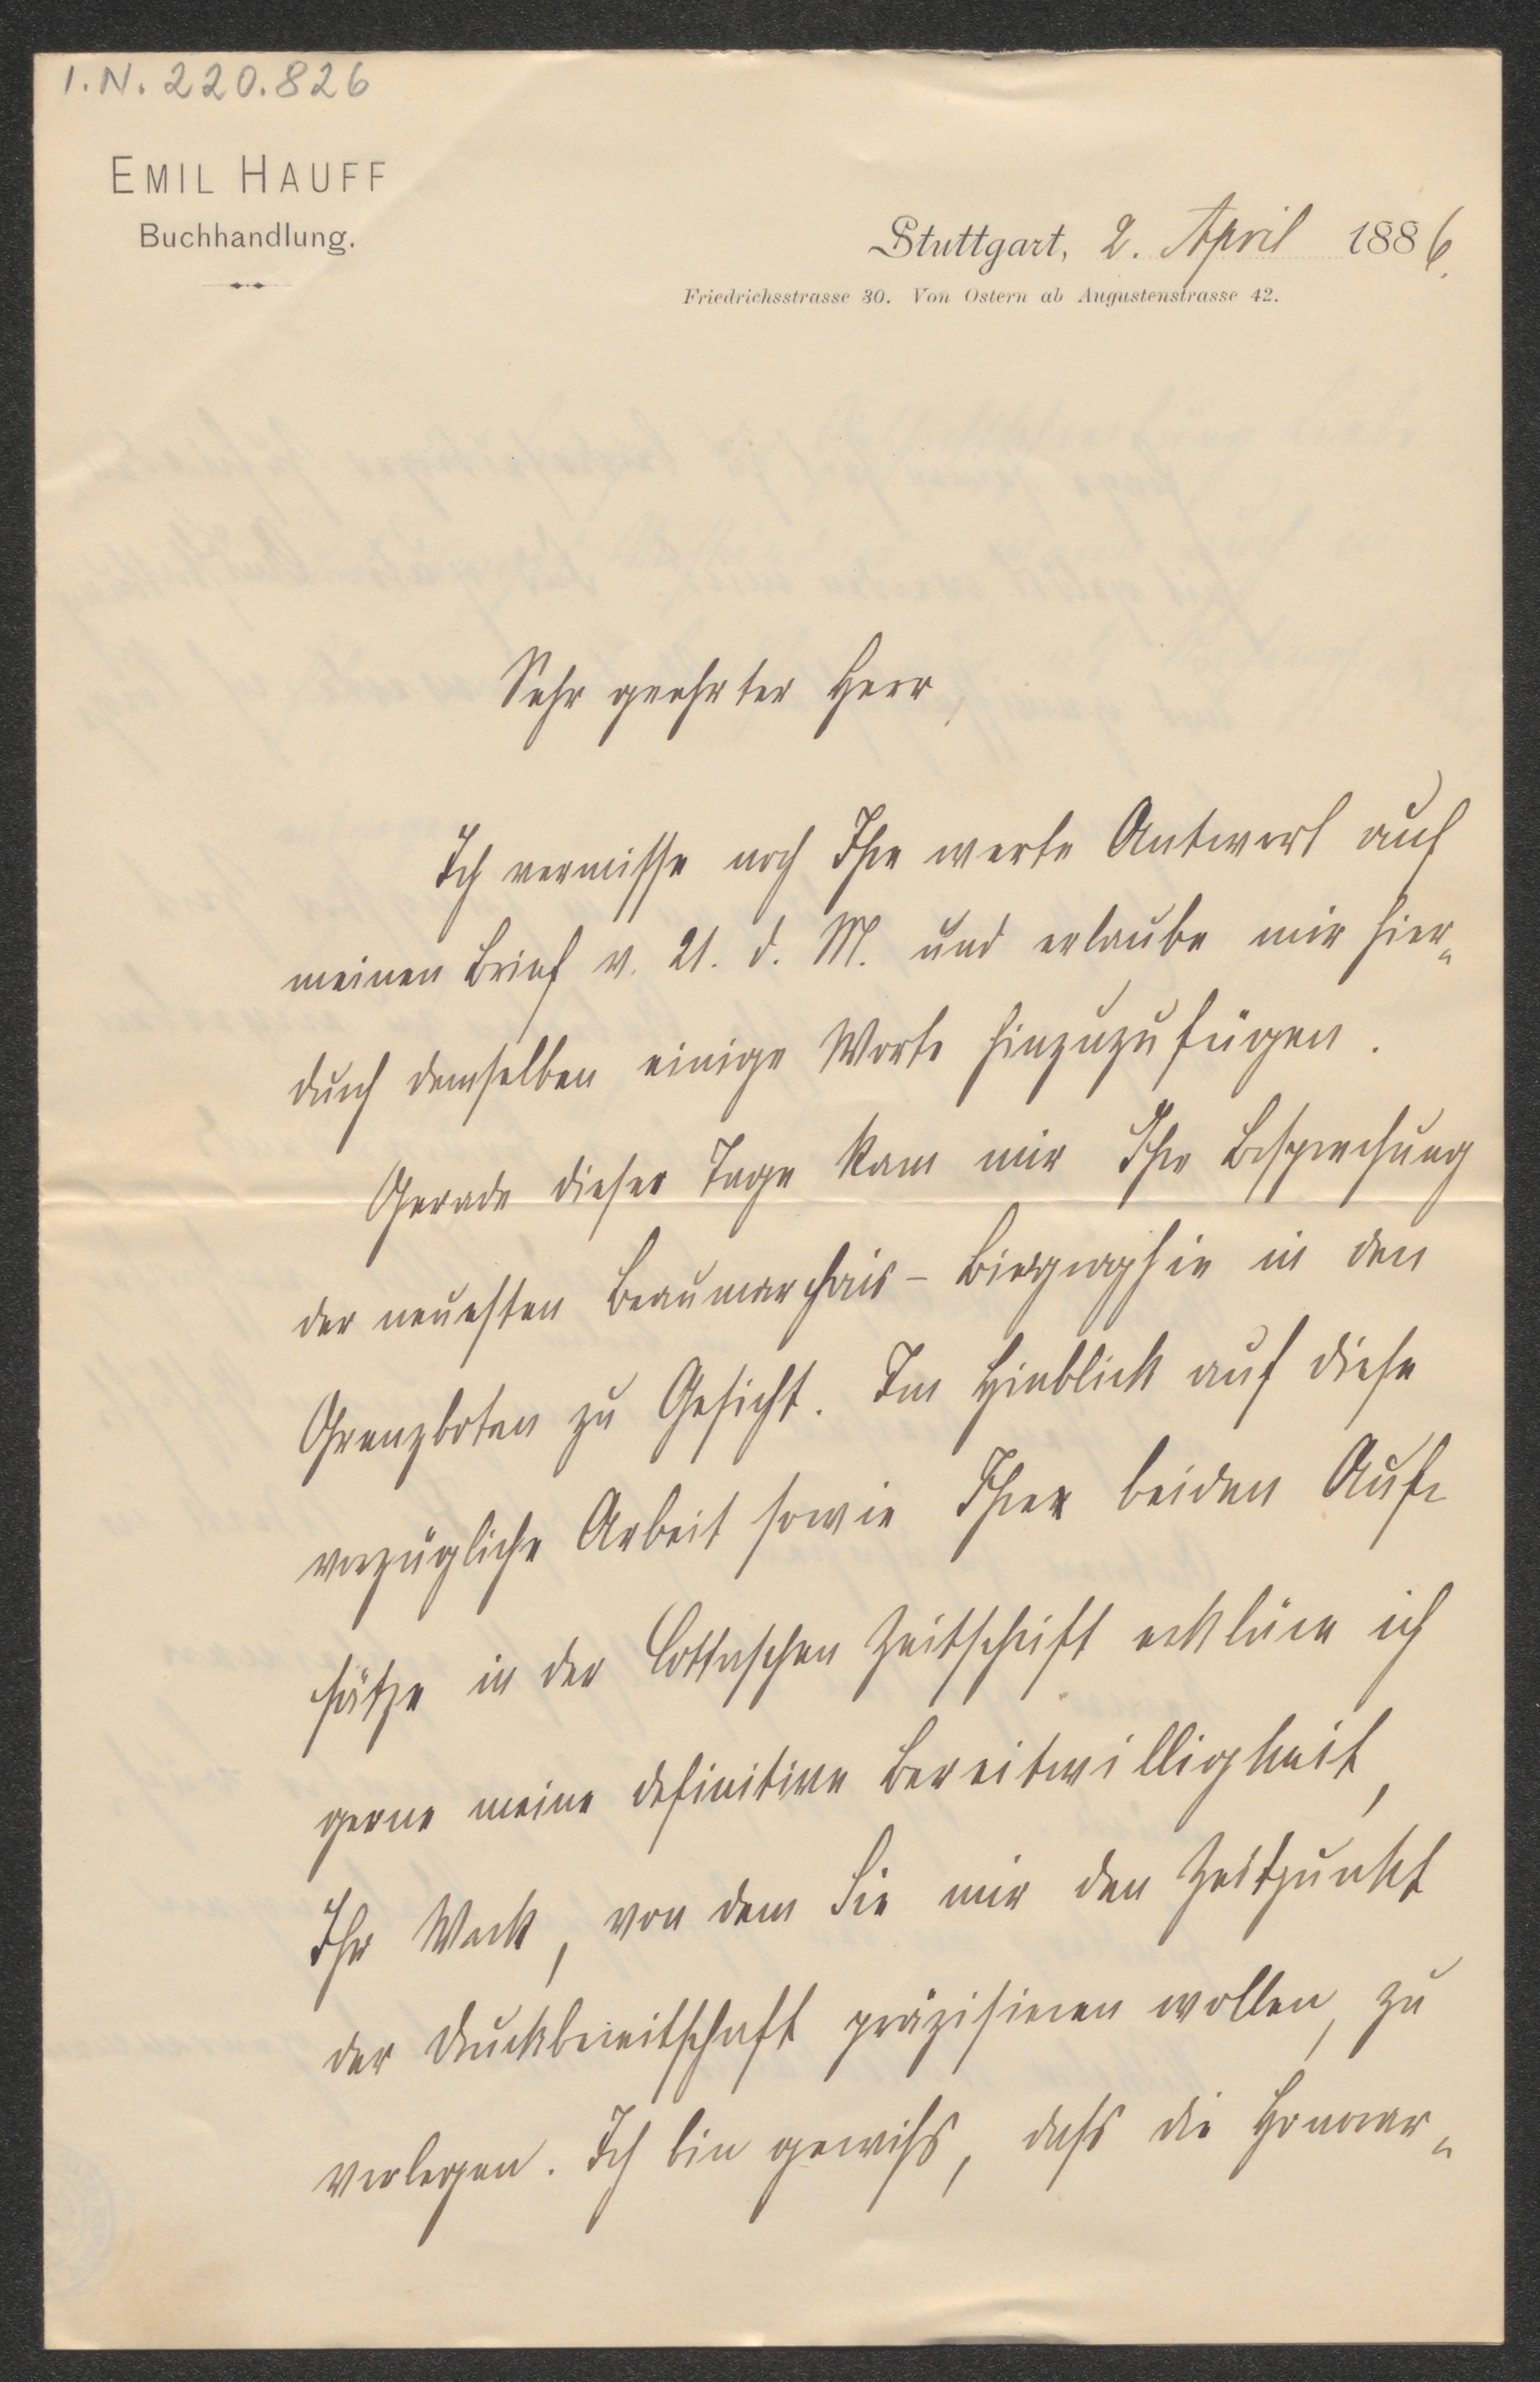 I.N. 220.826
EMIL HAUFF
Buchhandlung.
Stuttgart, 2. April 1886.
Friedrichsstrasse 30. Von Ostern ab Augustenstrasse 42.
Sehr geehrter Herr,
Ich vermisse noch Ihre werte Antwort auf
meinen Brief v. 21. d. M. und erlaube mir hier-
durch demselben einige Worte hinzuzufügen.
Gerade dieser Tage kam mir Ihre Besprechung
der neuesten Beaumarchais-Biographie in den
Grenzboten zu Gesicht. Im Hinblick auf diese
vorzügliche Arbeit sowie Ihrer beiden Auf-
sätze in der Cottaschen Zeitschrift erkläre ich
gerne meine definitive Bereitwilligkeit,
Ihr Werk, von dem Sie mir den Zeitpunkt
der Druckbereitschaft präzisieren wollen, zu
verlegen. Ich bin gewiss, dass die Honorar-